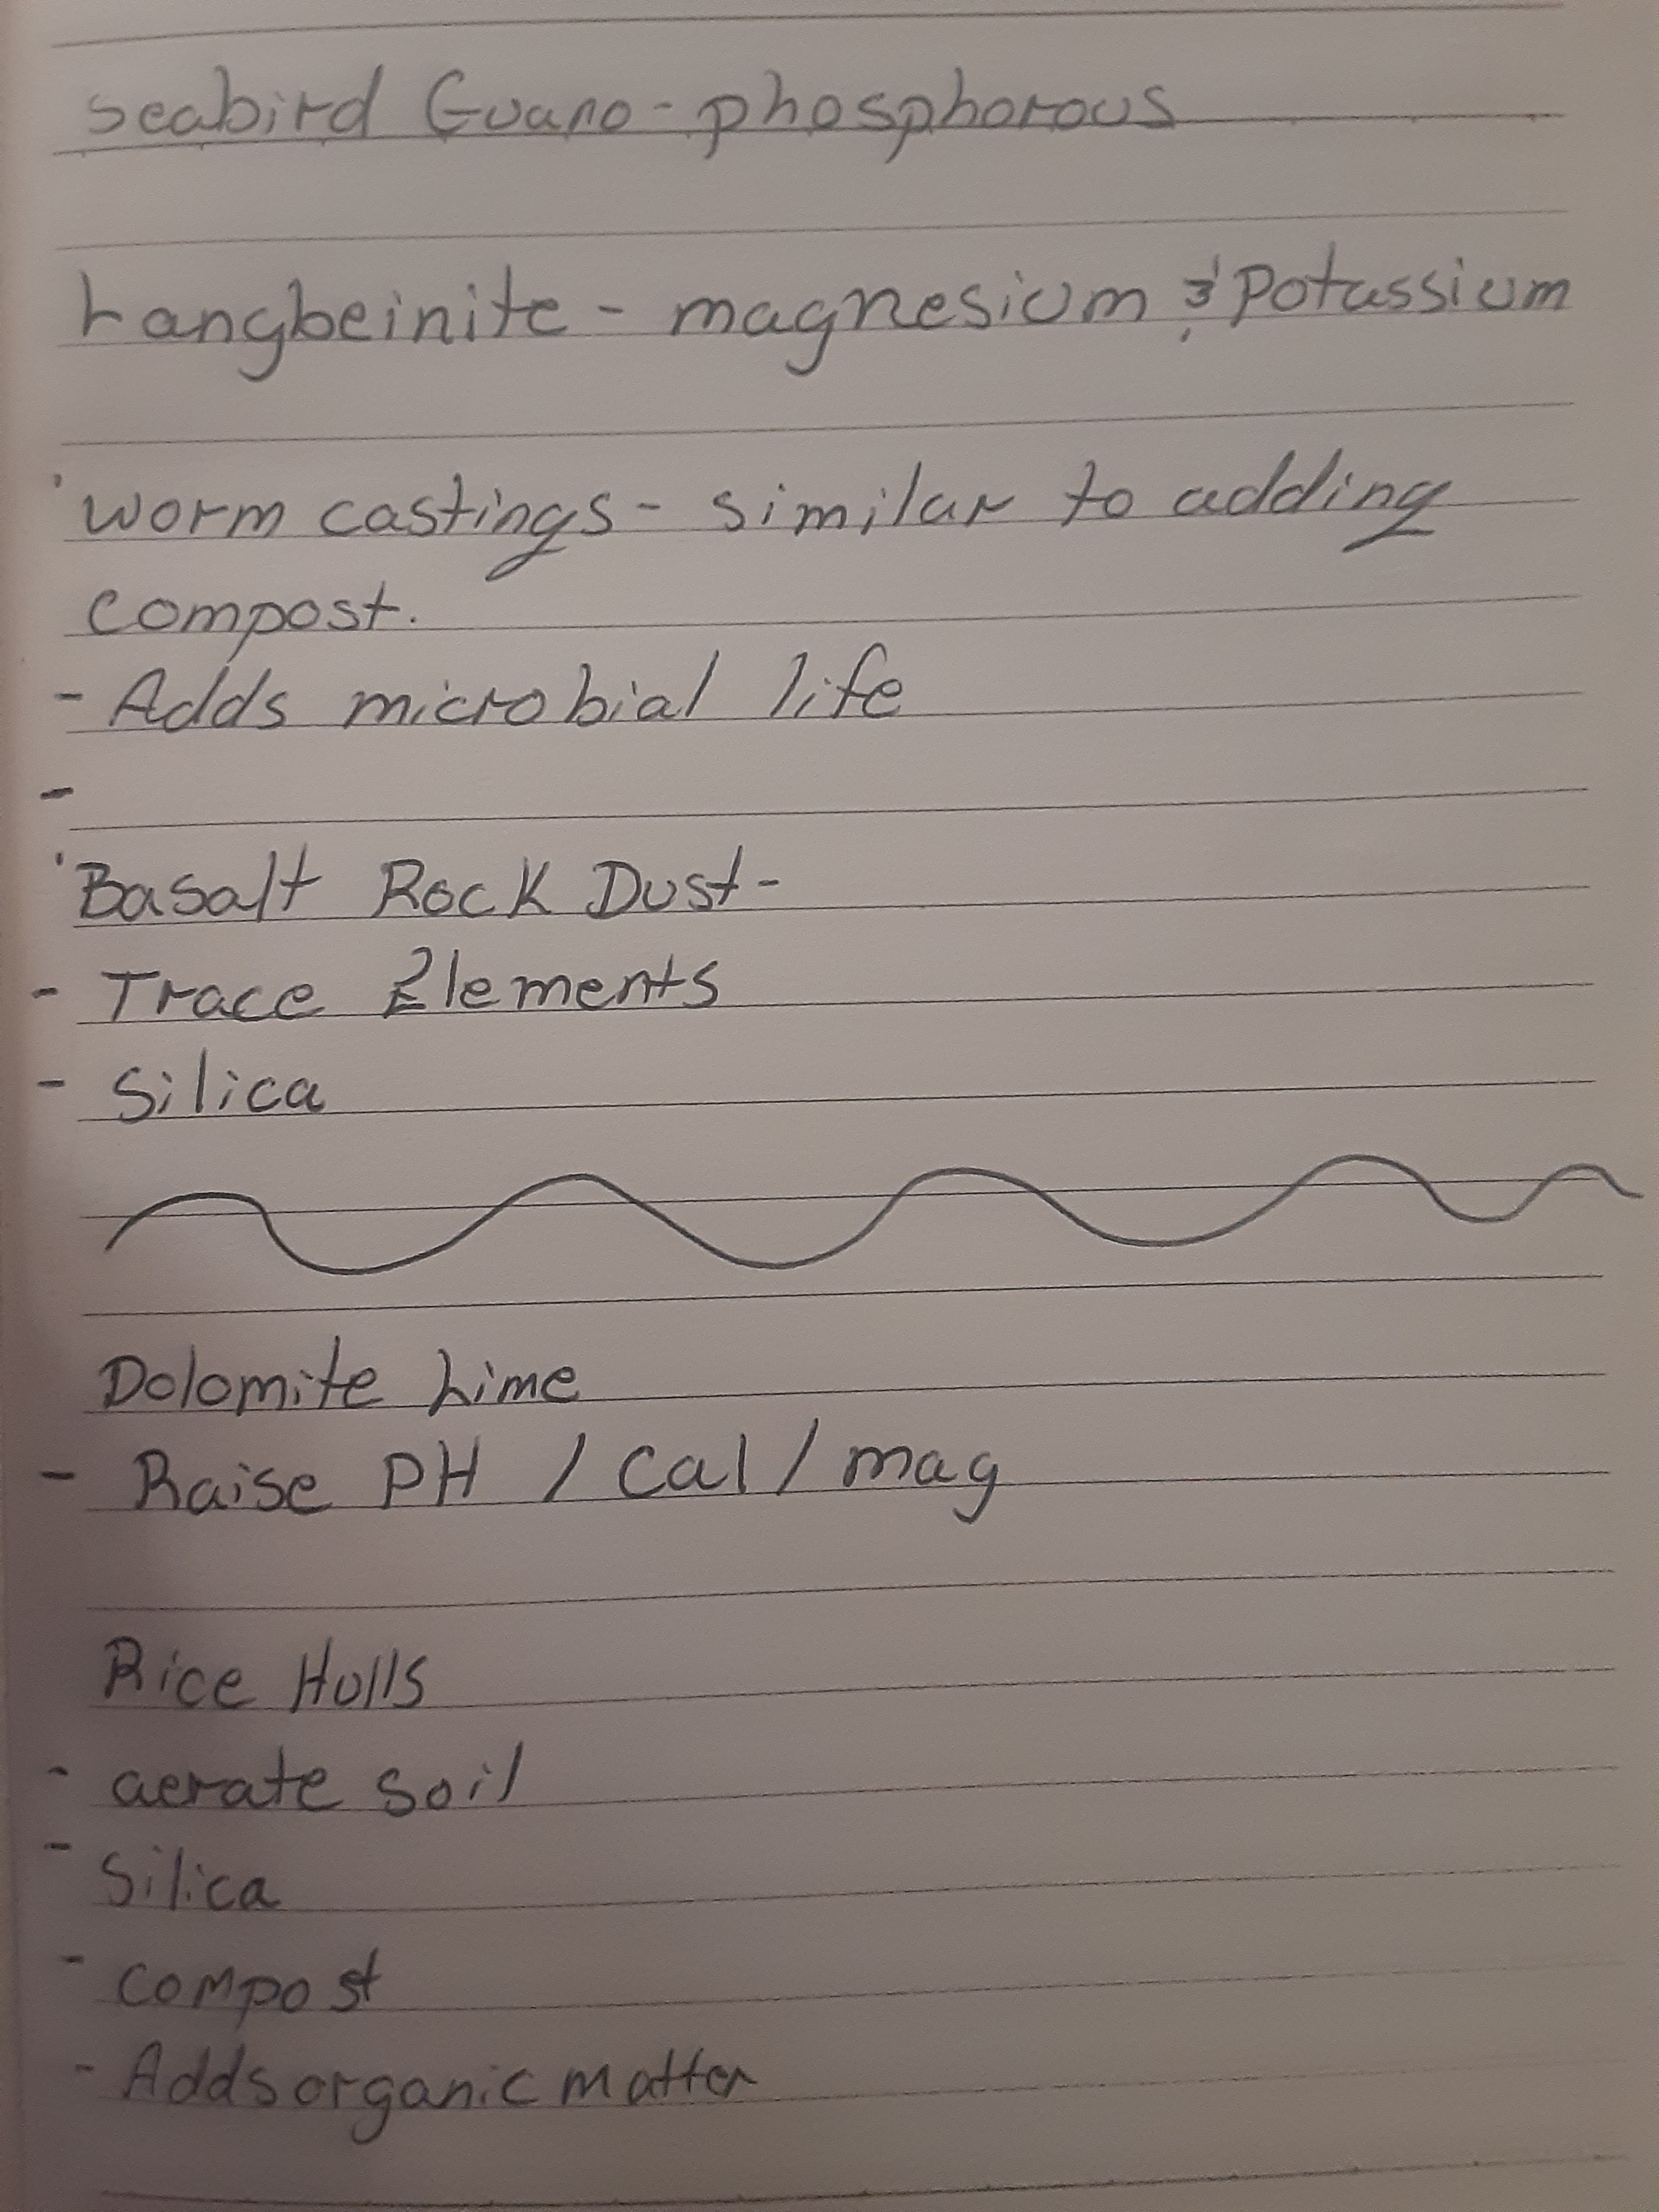 Seabird Guano - phosphorous
Langbeinite - magnesium & Potassium
'worm castings - similar to adding
compost.
- Adds microbial life
-
'Basalt Rock Dust -
- Trace Elements
- Silica
Dolomite Lime
- Raise PH / Cal / mag
Rice Hulls
- aerate soil
- Silica
- compost
- Adds organic matter